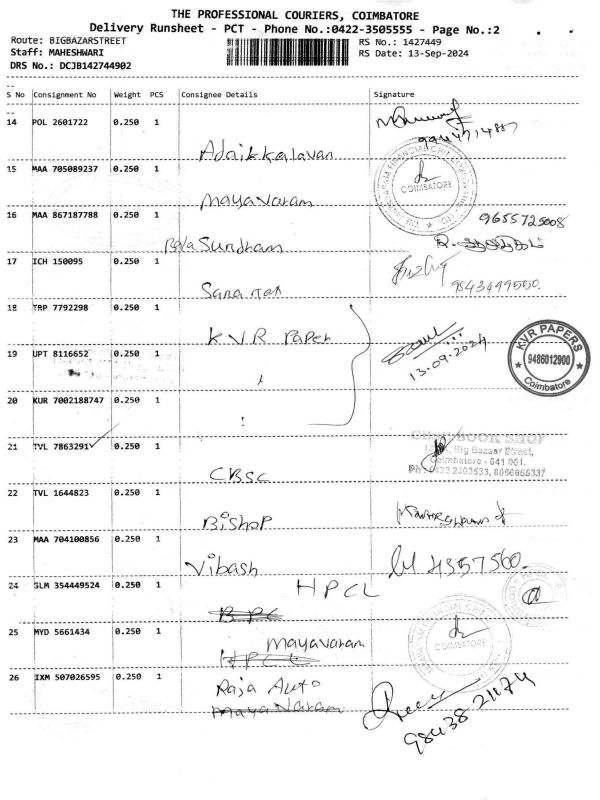 THE PROFESSIONAL COURIERS, COIMBATORE
Delivery Runsheet - PCT - Phone No.:0422-3505555 - Page No.:2
Route: BIGBAZARSTREET
RS No.: 1427449
Staff: MAHESHWARI
RS Date: 13-Sep-2024
DRS No.: DCJB142744902
S No Consignment No Weight PCS Consignee Details Signature
14 POL 2601722 0.250 1
Adaikkalavan
15 MAA 705089237 0.250 1
COIMBATORE
Mayavaram
16 MAA 867187788 0.250 1
9655725008
Bala Sundham
17 ICH 150095 0.250 1
9843499550.
18 TRP 7792298 0.250 1
KVR Paper
13.09.2024
KVR PAPERS
9486012900
Coimbatore
19 UPT 8116652 0.250 1
20 KUR 7002188747 0.250 1
21 TVL 7863291 0.250 1
BOOK SHOP
Big Bazaar Street,
Coimbatore - 641 001.
CBSC
22 TVL 1644823 0.250 1
Bishop
23 MAA 704100856 0.250 1
Vibash
4357560.
24 SLM 354449524 0.250 1
HPCL
BPC
25 MYD 5661434 0.250 1
Mayavaram
HPCL
COIMBATORE
26 IXM 507026595 0.250 1
Raja Auto
Mayavaram
98438 21174